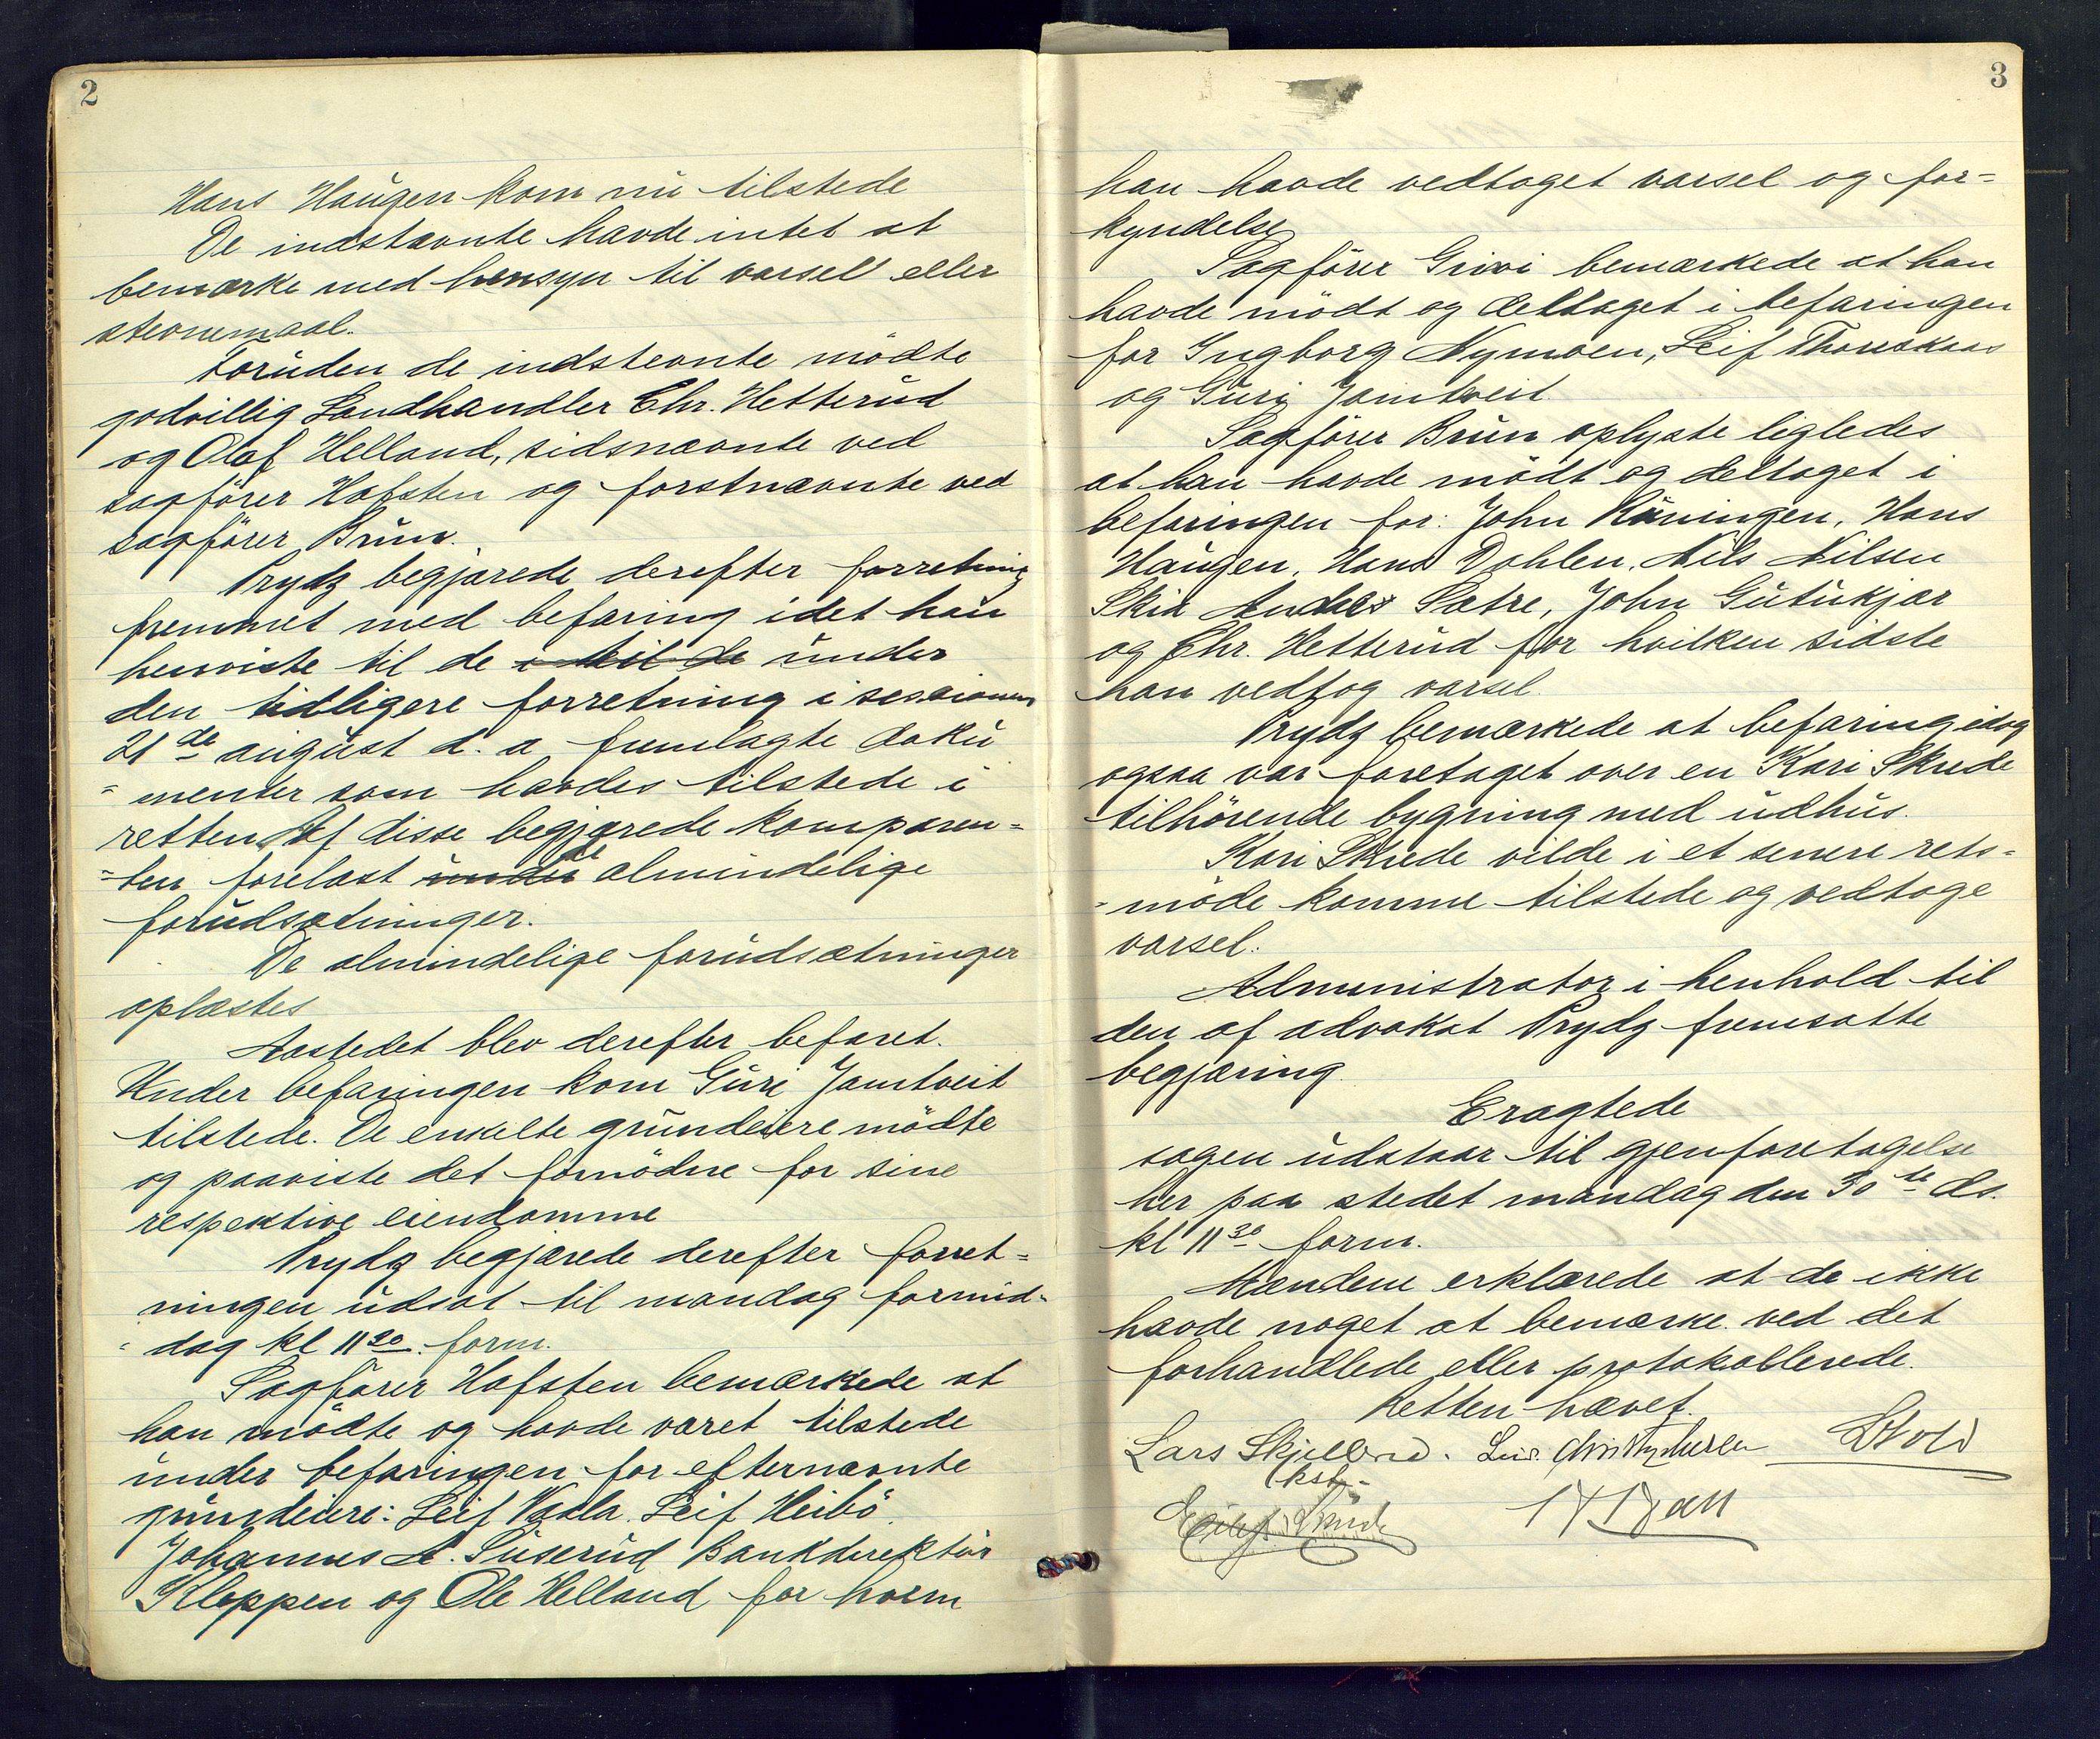 2
Hans Haugen kom nu tilstede
De indstævnte havde intet at
bemærke med hensyn til varsel eller
stevnemaal.
Foruden de indstevnte mødte
godvillig Landhandler Chr. Hetterud
og Olaf Helland, sidsnævnte ved
sagfører Hafsten og førstnævnte ved
sagfører Brun.
Prydz begjærede derefter forretning
fremmet med befaring idet han
henviste til de under
den tidligere forretning i sessionen
21de august d. a. fremlagte doku
= menter som havdes tilstede i
retten. Af disse begjærede komparen=
=ten forelæst de almindelige
forudsætninger.
De almindelige forudsætninger
oplæstes
Aastedet blev derefter befaret.
Under befaringen kom Guri Jamtveit
tilstede. De enkelte grundeiere mødte
og paaviste det fornødne for sine
respektive eiendomme
Prydz begjærede derefter forret=
ningen udsat til mandag formid=
= dag kl 11 30. form.
Sagfører Hafsten bemærkede at
han mødte og havde været tilstede
under befaringen for efternævnte
grundeiere: Leif Vaala, Leif Heibø.
Johannes A. Suserud Bankdirektør
Kleppen og Ole Helland for hvem
3
han havde vedtaget varsel og for=
kyndelse
Sagfører Grivi bemærkede at han
havde mødt og deltaget i befaringen
for Ingborg Nymoen, Leif Thoreskaas
og Guri Jamtveit
Sagfører Brun oplyste ligledes
at han havde mødt og deltaget i
befaringen for: John Høningen, Hans
Haugen, Hans Dahlen, Nils Nilsen
Skia Anders Sætre, John Gutukjær
og Chr. Hetterud for hvilken sidste
han vedtog varsel.
Prydz bemærkede at befaring idag
ogsaa var foretaget over en Kari Skrede
tilhørende bygning med udhus.
Kari Skrede vilde i et senere rets=
= møde komme tilstede og vedtage
varsel.
Administrator i henhold til
den af advokat Prydz fremsatte
begjæring.
Eragtede
sagen udstaar til gjenforetagelse
her paa stedet mandag den 30te ds.
kl 11 30 form.
Mændene erklærede at de ikke
havde noget at bemærke ved det
forhandlede eller protokollerede.
Retten hævet.
Lars Skjelbred.